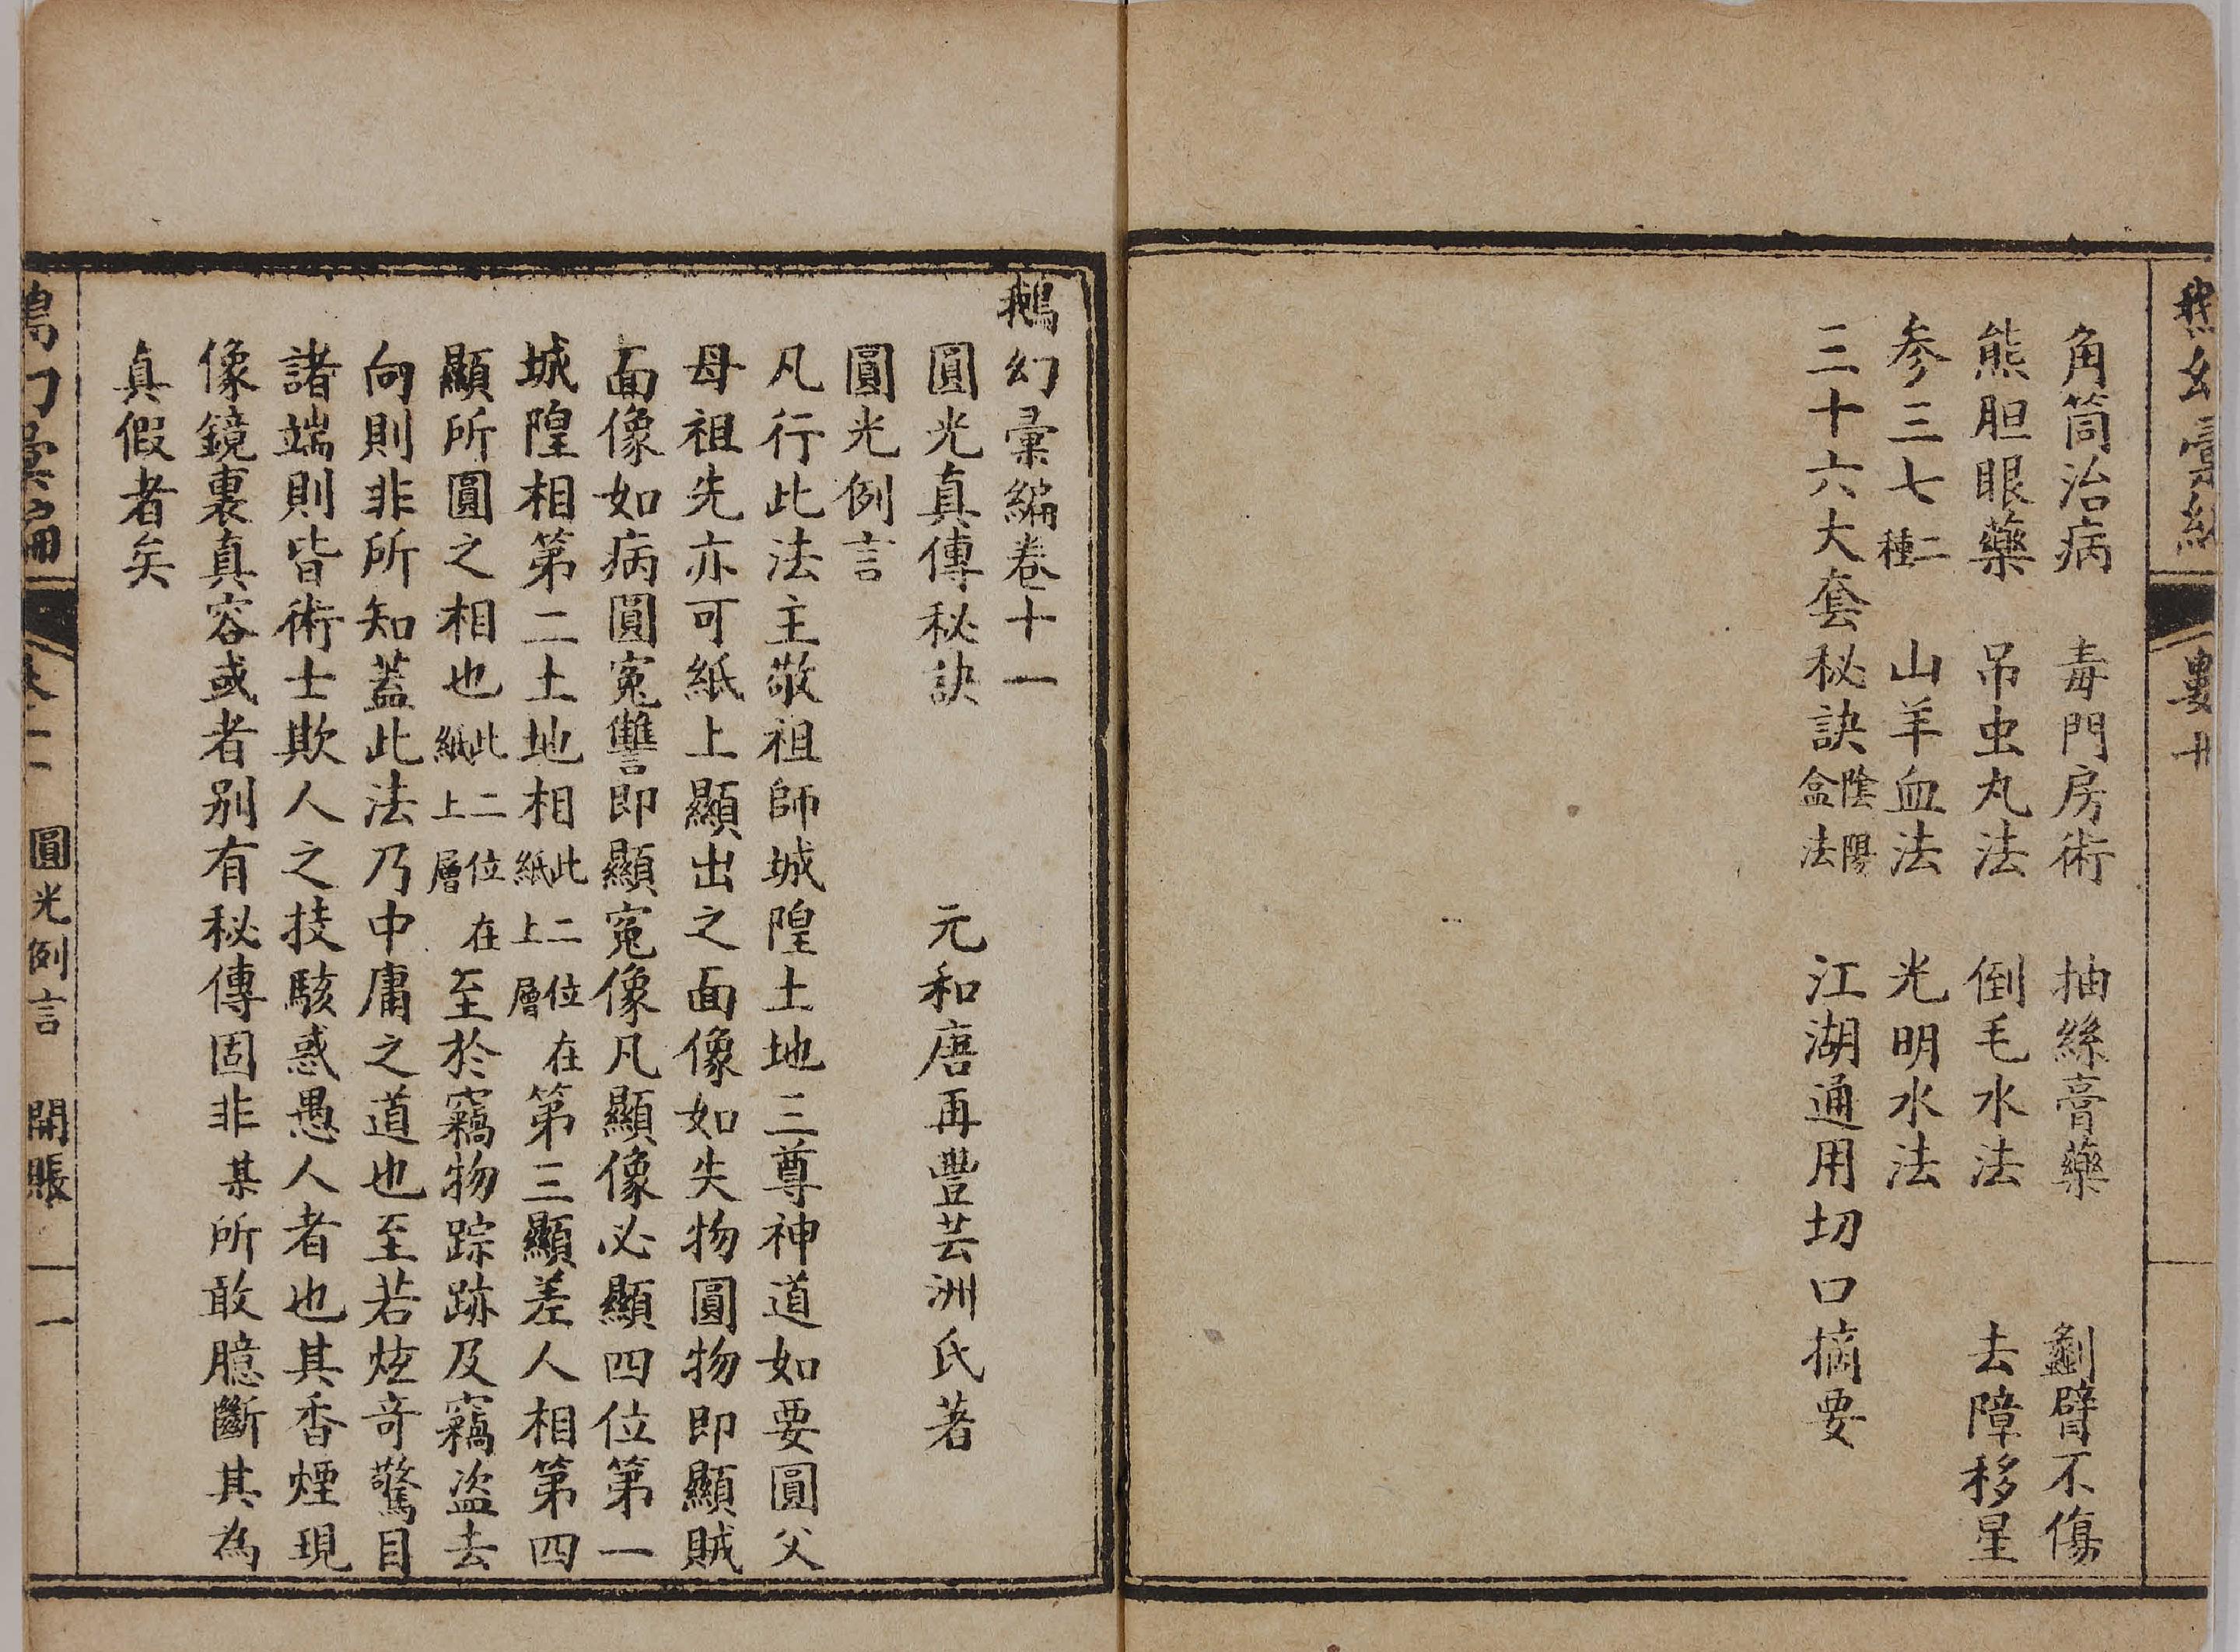 角筒治病　毒門房術　抽絲膏藥　劙臂不傷
熊胆眼藥　吊虫丸法　倒毛水法　去障移星
参三七二種　山羊血法　光明水法
三十六大套秘訣陰陽盒法　江湖通用切口摘要
鵝幻彙編卷十一
圓光真傳秘訣　元和唐再豐芸洲氏著
圓光例言
凡行此法主敬祖師城隍土地三尊神道如要圓父
母祖先亦可紙上顯出之面像如失物圓物即顯賊
面像如病圓寃讐即顯寃像凡顯像必顯四位第一
城隍相第二土地相此二位在紙上層第三顯差人相第四
顯所圓之相也此二位在紙上層至於竊物踪跡及竊盗去
向則非所知蓋此法乃中庸之道也至若炫竒驚目
諸端則皆術士欺人之技駭惑愚人者也其香煙現
像鏡裏真容或者别有秘傳固非某所敢臆斷其為
真假者矣
鵝幻彙編　卷十一　圓光例言　開賬　一